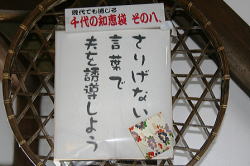 現代でも通じる
千代の知恵袋 その八、
さりげない
言葉で
夫を誘導しよう